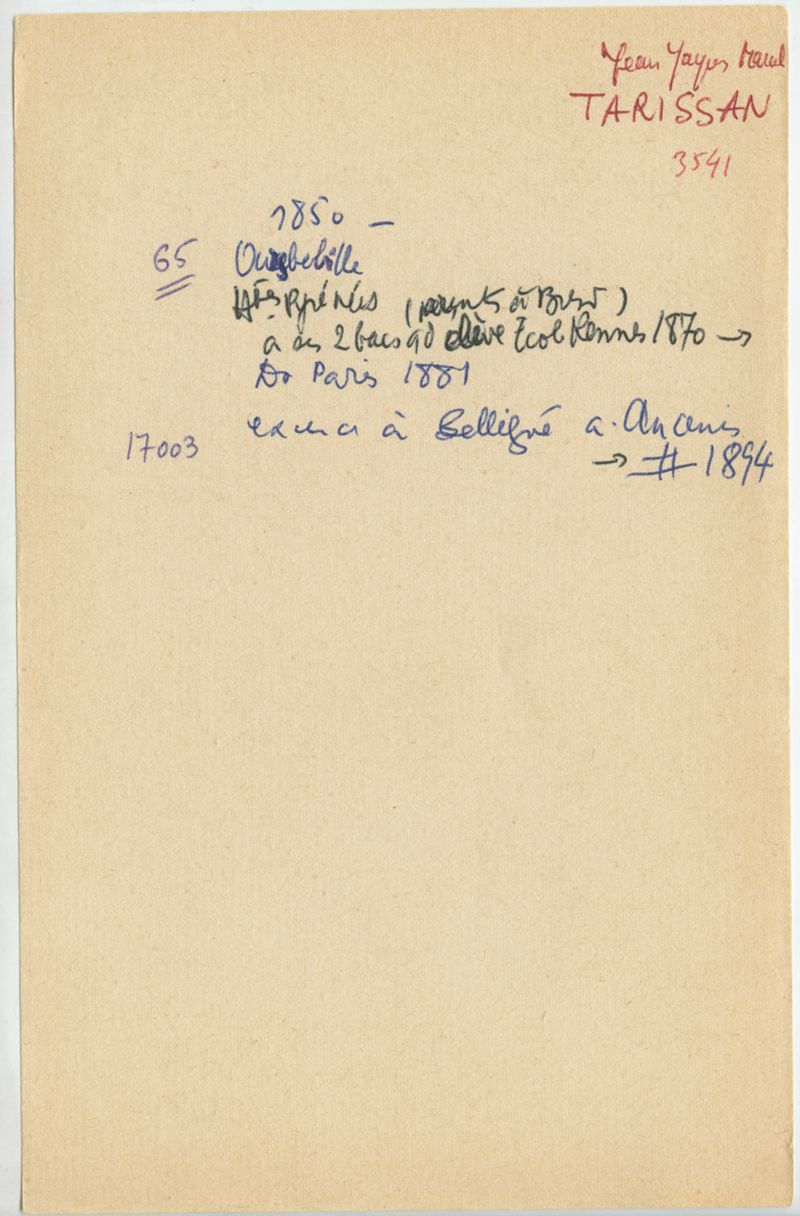 Jean Jacques Marcel
TARISSAN
3541
1850 –
65
Htes Pyrénées (parents à Brest)
a ses 2 bacs qd élève Ecole Rennes 1870 →
Dr Paris 1881
17003 exerce à Belligné a. Ancenis
→ # 1894